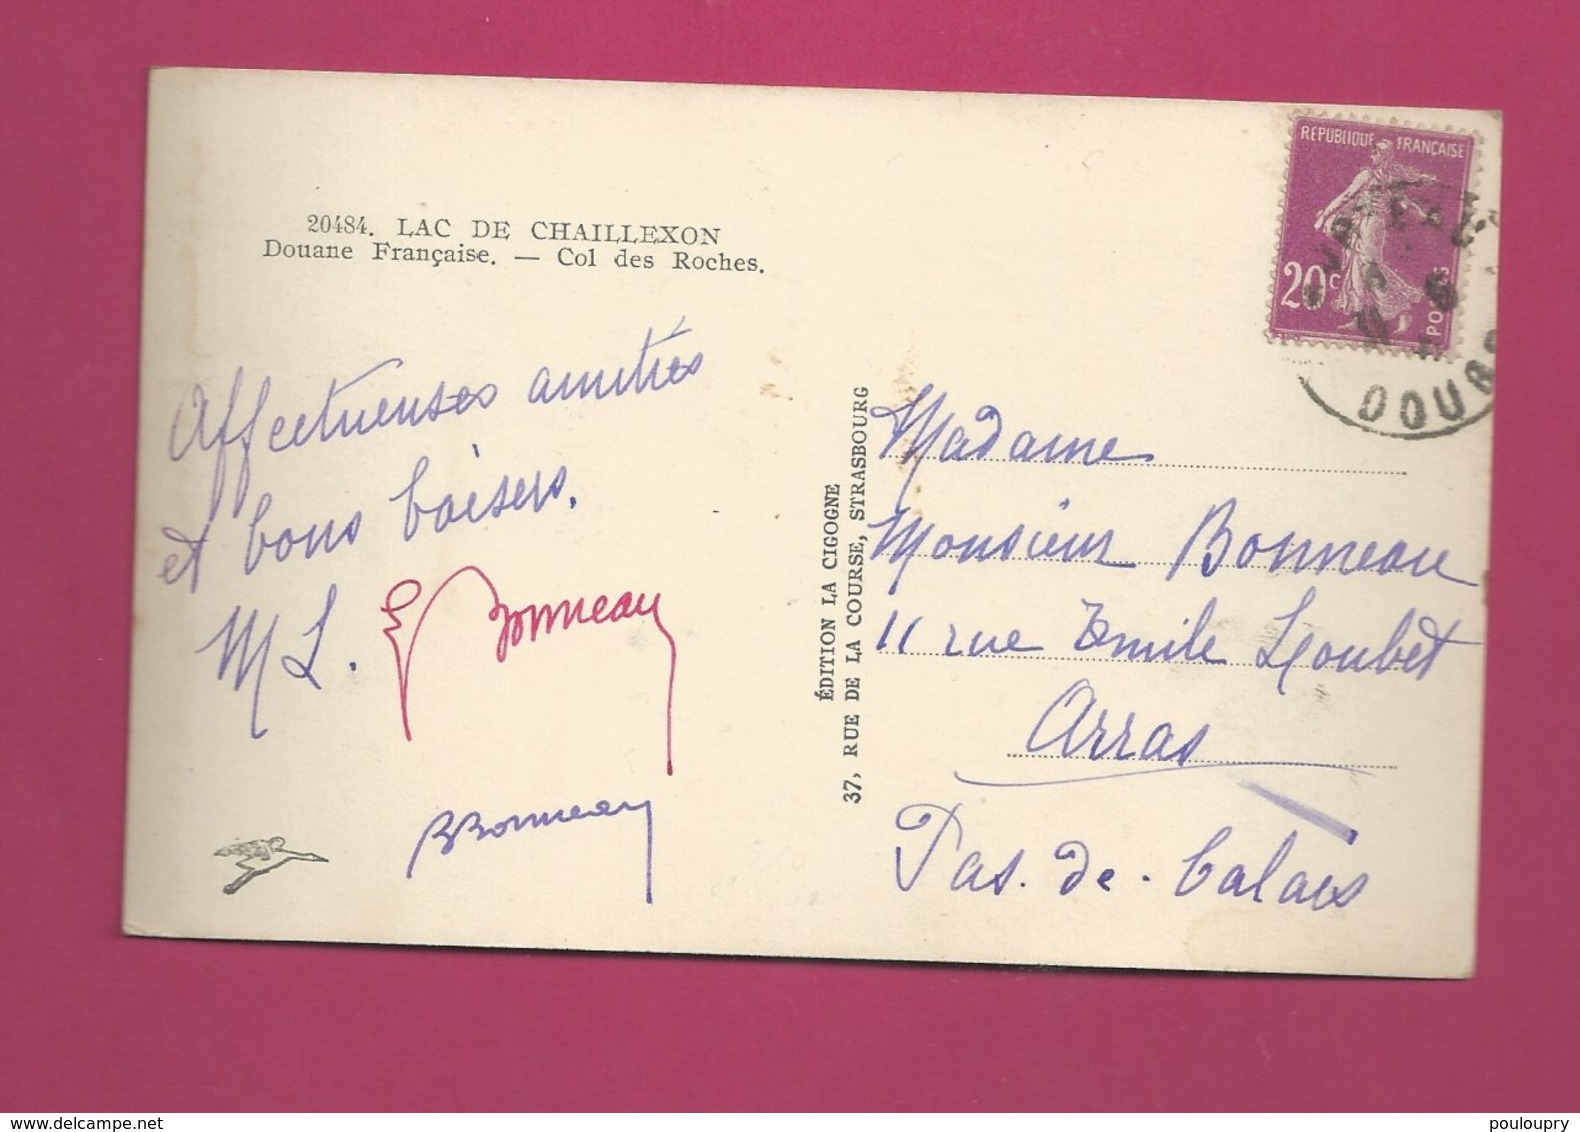 20484. LAC DE CHAILLEXON
Douane Française. — Col des Roches.
Affectueuses amitiés
et bons baisers.
M L. E Bonneau
BBonneau
ÉDITION LA CIGOGNE
37, RUE DE LA COURSE, STRASBOURG
REPUBLIQUE FRANÇAISE
20c
POSTES
DOUBS
Madame
Monsieur Bonneau
11 rue Emile Loubet
Arras
Pas-de-Calais
www.delcampe.net
pouloupry